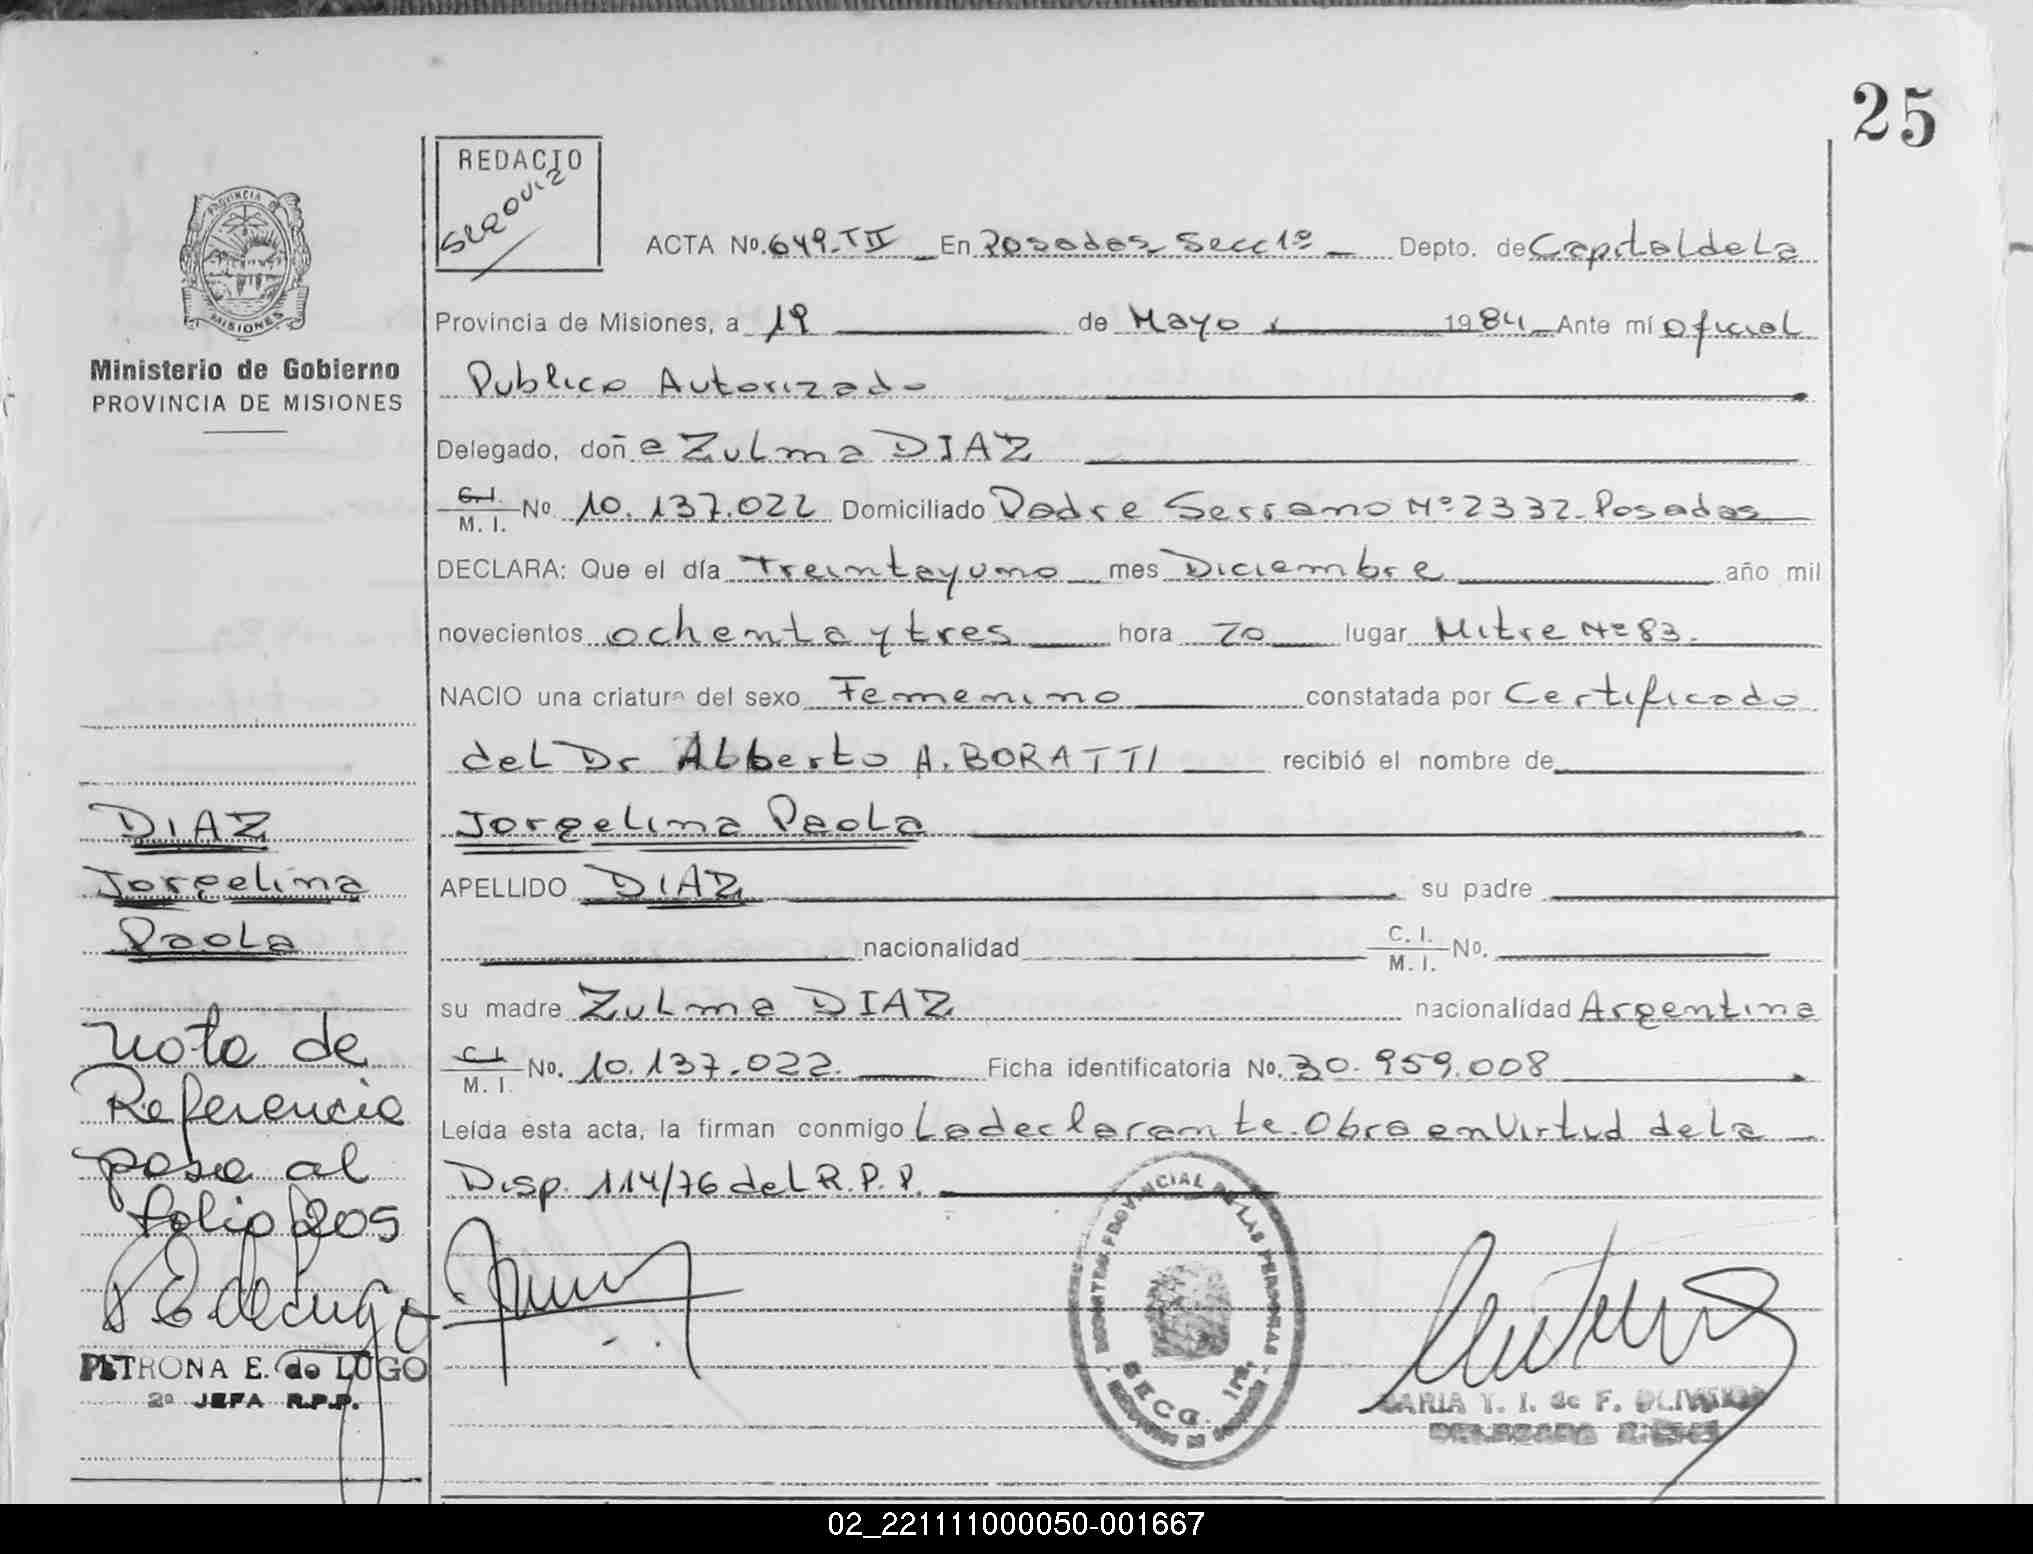 25
REDACTO
SERQUIZ
PROVINCIA DE
MISIONES
Ministerio de Gobierno
PROVINCIA DE MISIONES
ACTA No. 649-TII En Posadas Secc 1º Depto. de Capital de La
Provincia de Misiones, a 19 de Mayo 1984 Ante mí Oficial
Publico Autorizado
Delegado, doña Zulma DIAZ
C.I. / M. I. No 10.137.022 Domiciliado Padre Serrano Nº 2332 Posadas
DECLARA: Que el día Treintayuno mes Diciembre año mil
novecientos ochenta y tres hora 20 lugar Mitre Nº 83.
NACIO una criatura del sexo Femenino constatada por Certificado
del Dr Alberto A. BORATTI recibió el nombre de
Jorgelina Paola
APELLIDO DIAZ su padre
nacionalidad C. I. / M. I. No.
su madre Zulma DIAZ nacionalidad Argentina
C.I. / M. I. No. 10.137.022. Ficha identificatoria No. 30.959.008
Leída esta acta, la firman conmigo La declarante. Obra en Virtud de La
Disp. 114/76 del R.P.P.
DIAZ
Jorgelina
Paola
Nota de
Referencia
pasa al
folio 205
PETRONA E. de LUGO
2º JEFA R.P.P.
PROVINCIAL DE LAS PERSONAS
SECC. 1ra.
MARIA Y. I. de F. OLIVEIRA
02_221111000050-001667